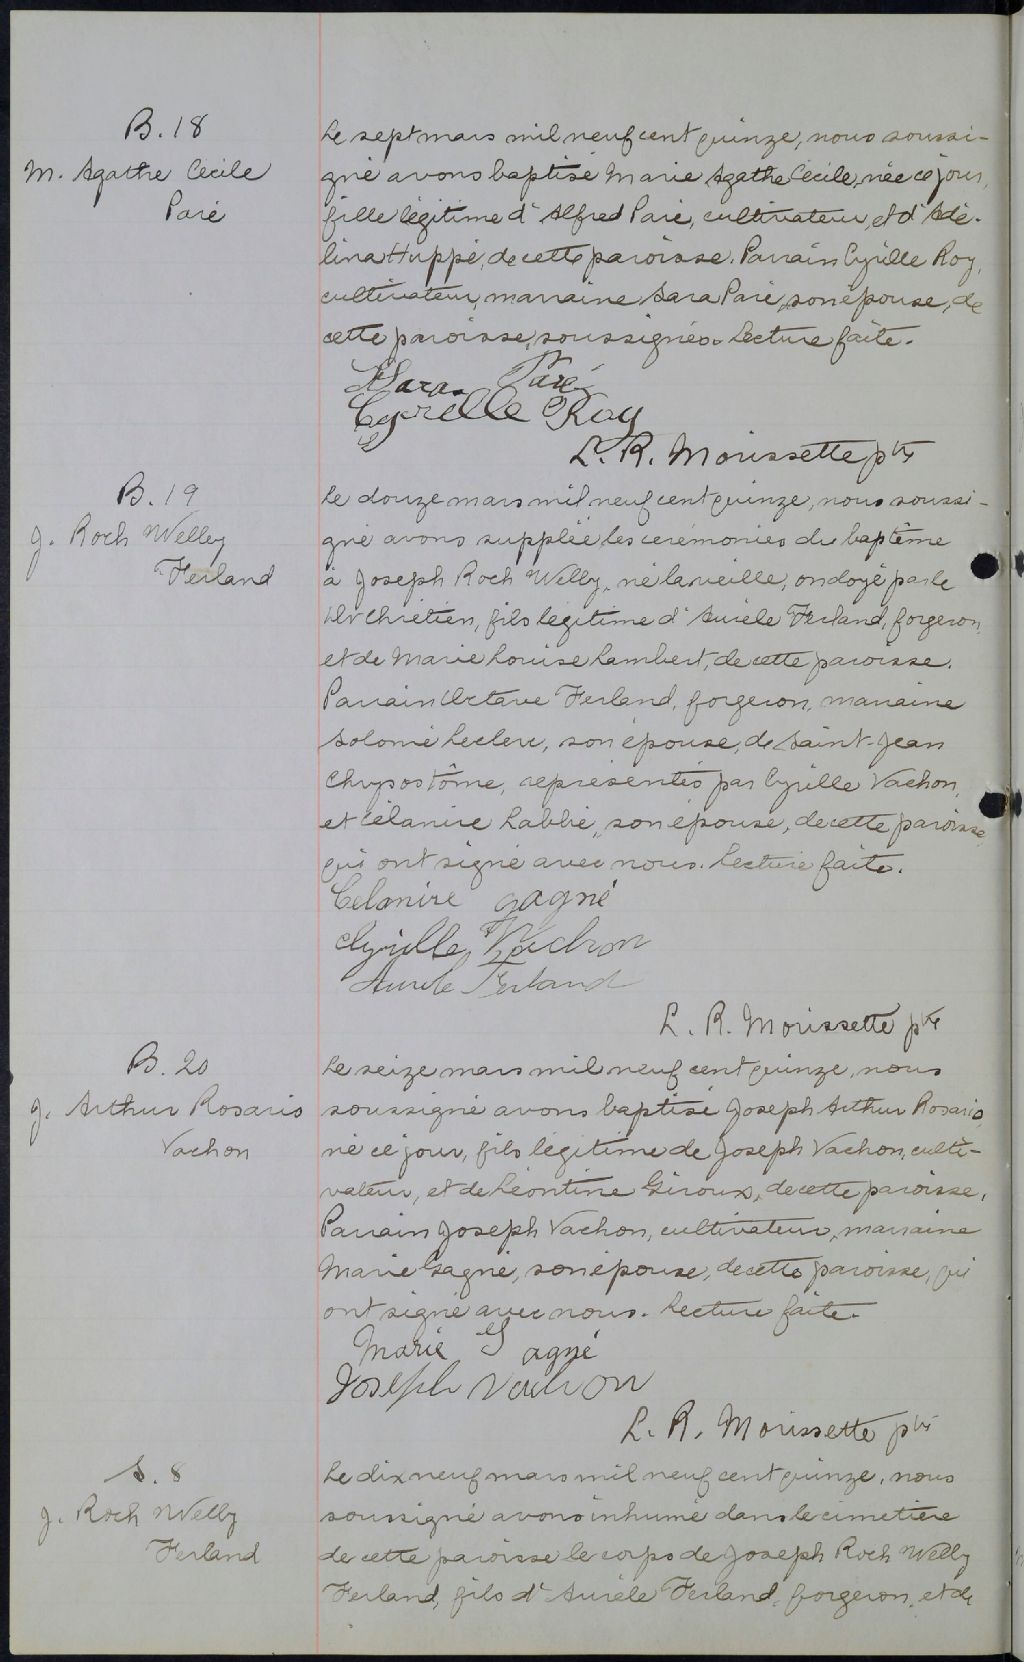 B. 18
M. Agathe Cécile
Paré
Le sept mars mil neuf cent quinze, nous soussi-
gné avons baptisé Marie Agathe Cécile, née ce jour,
fille légitime d'Alfred Paré, cultivateur, et d'Adé-
lina Huppé, de cette paroisse. Parrain Cyrille Roy,
cultivateur, marraine Sara Paré, son épouse, de
cette paroisse, soussignés. Lecture faite.
Sara Paré
Cyrille Roy
L. R. Morissette ptre
B. 19
J. Roch Welley
Ferland
Le douze mars mil neuf cent quinze, nous soussi-
gné avons suppléé les cérémonies du baptême
à Joseph Roch Welly, né la veille, ondoyé par le
Dr Chrétien, fils légitime d'Aurèle Ferland, forgeron,
et de Marie Louise Lambert, de cette paroisse.
Parrain Octave Ferland, forgeron, marraine
Salomé Leclerc, son épouse, de Saint-Jean
Chrysostôme, représentés par Cyrille Vachon,
et Célanire Labbé, son épouse, de cette paroisse,
qui ont signé avec nous. Lecture faite.
Celanire gagné
Cyrille Vachon
Aurèle Ferland
L. R. Morissette ptre
B. 20
J. Arthur Rosario
Vachon
Le seize mars mil neuf cent quinze, nous
soussigné avons baptisé Joseph Arthur Rosario,
né ce jour, fils légitime de Joseph Vachon, culti-
vateur, et de Léontine Giroux, de cette paroisse.
Parrain Joseph Vachon, cultivateur, marraine
Marie Gagné, son épouse, de cette paroisse, qui
ont signé avec nous. Lecture faite.
Marie Gagné
Joseph Vachon
L. R. Morissette ptre
S. 8
J. Roch Welly
Ferland
Le dix neuf mars mil neuf cent quinze, nous
soussigné avons inhumé dans le cimetière
de cette paroisse le corps de Joseph Roch Welly
Ferland, fils d'Aurèle Ferland, forgeron, et de